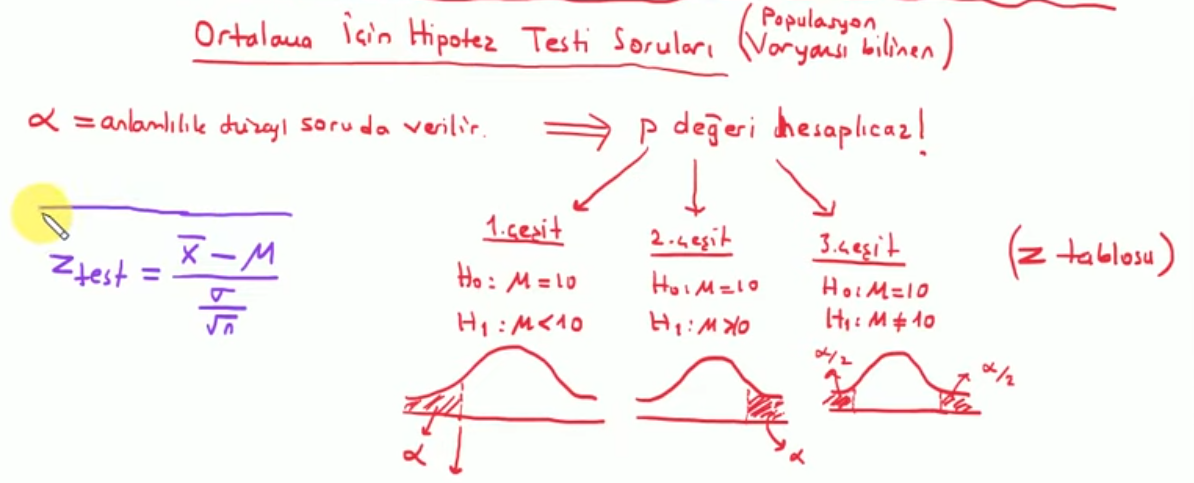 Ortalama İçin Hipotez Testi Soruları (Populasyon Varyansı bilinen)
α = anlamlılık düzeyi soruda verilir. ⟹ p değeri hesaplıcaz!
1. çeşit
H₀ : M = 10
H₁ : M < 10
α
2. çeşit
H₀ : M = 10
H₁ : M > 10
α
3. çeşit
H₀ : M = 10
H₁ : M ≠ 10
α/2 α/2
(z tablosu)
z test = (x̄ − M) / (σ/√n)